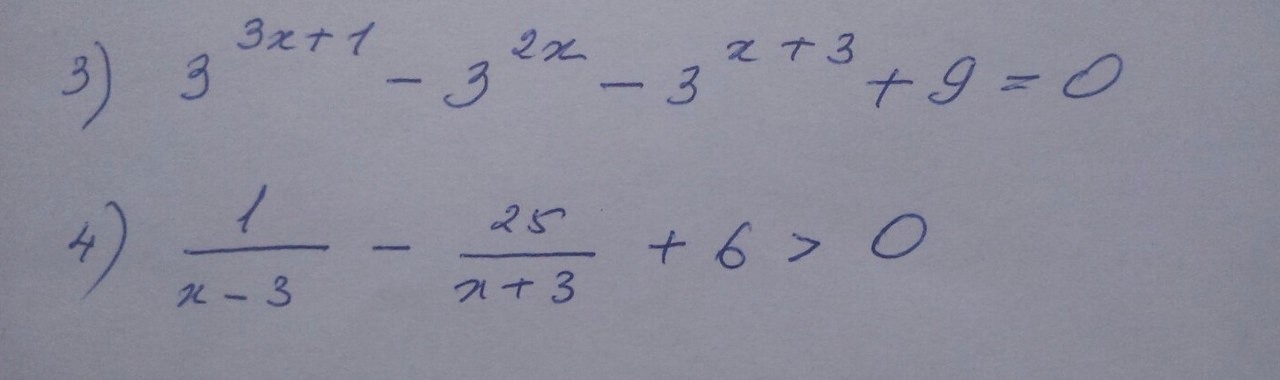 3) 3^{3x+1} - 3^{2x} - 3^{x+3} + 9 = 0
4) \frac{1}{x-3} - \frac{25}{x+3} + 6 > 0